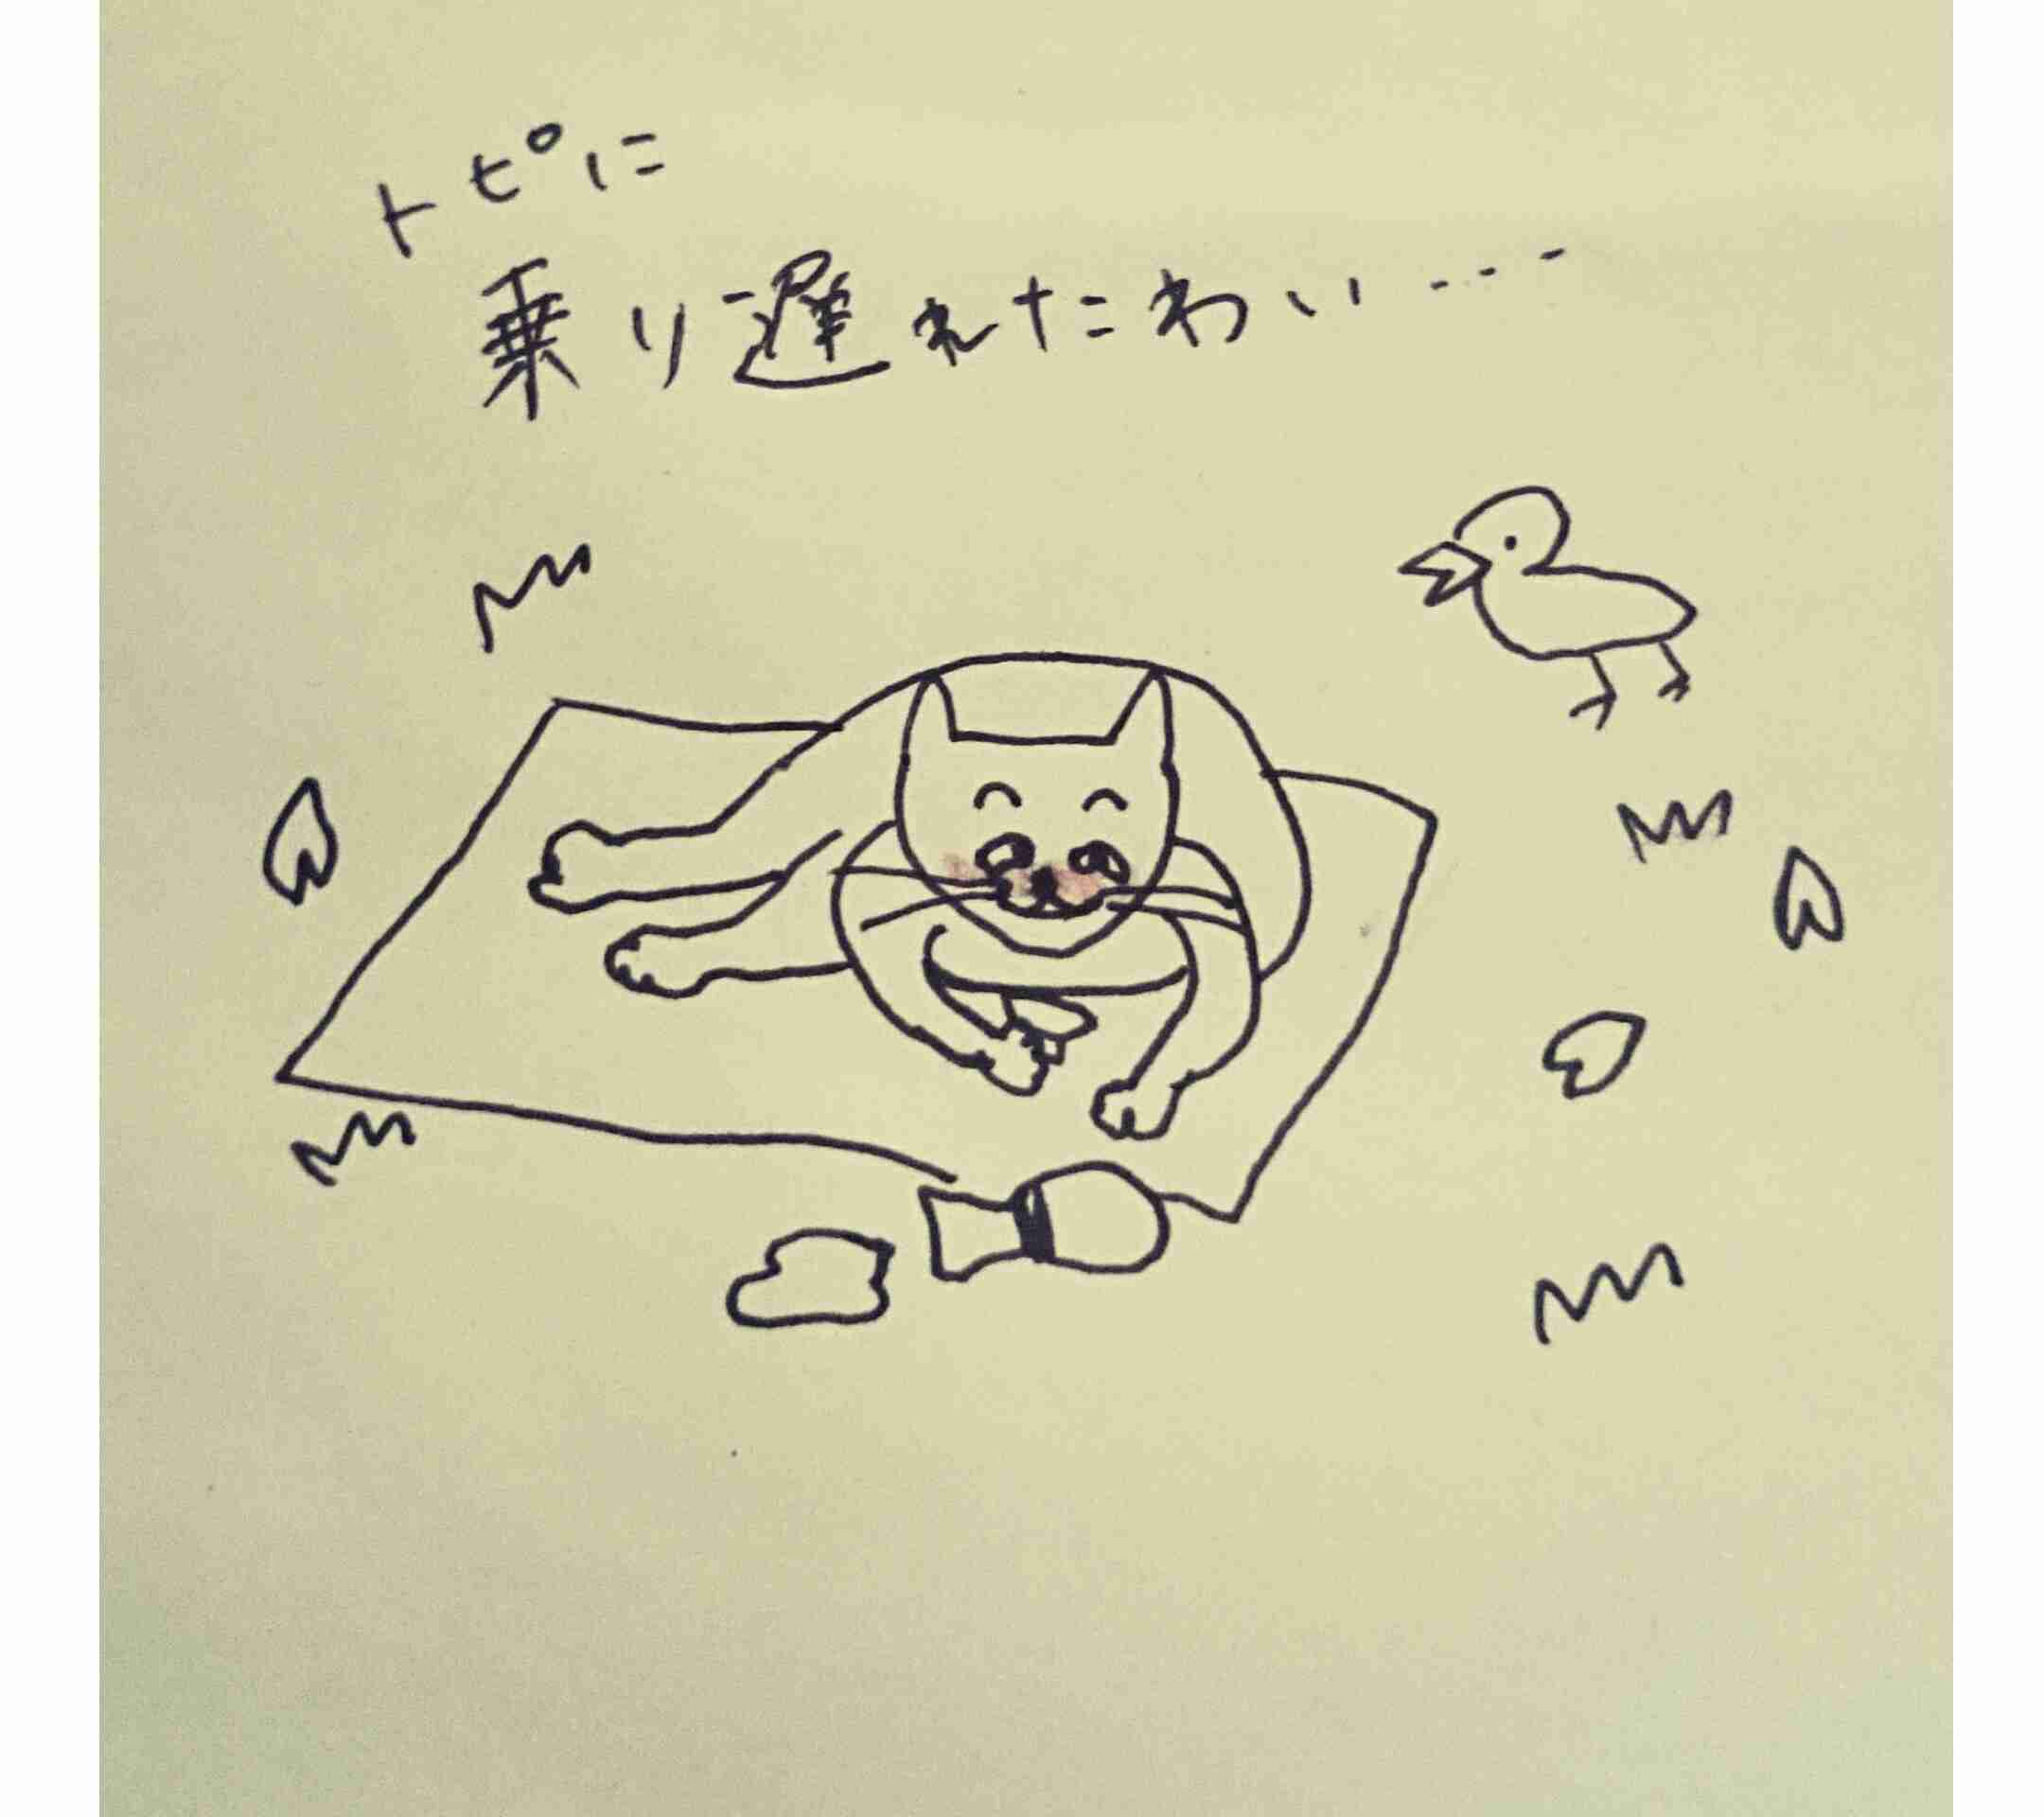 トピに
乗り遅れたわい・・・